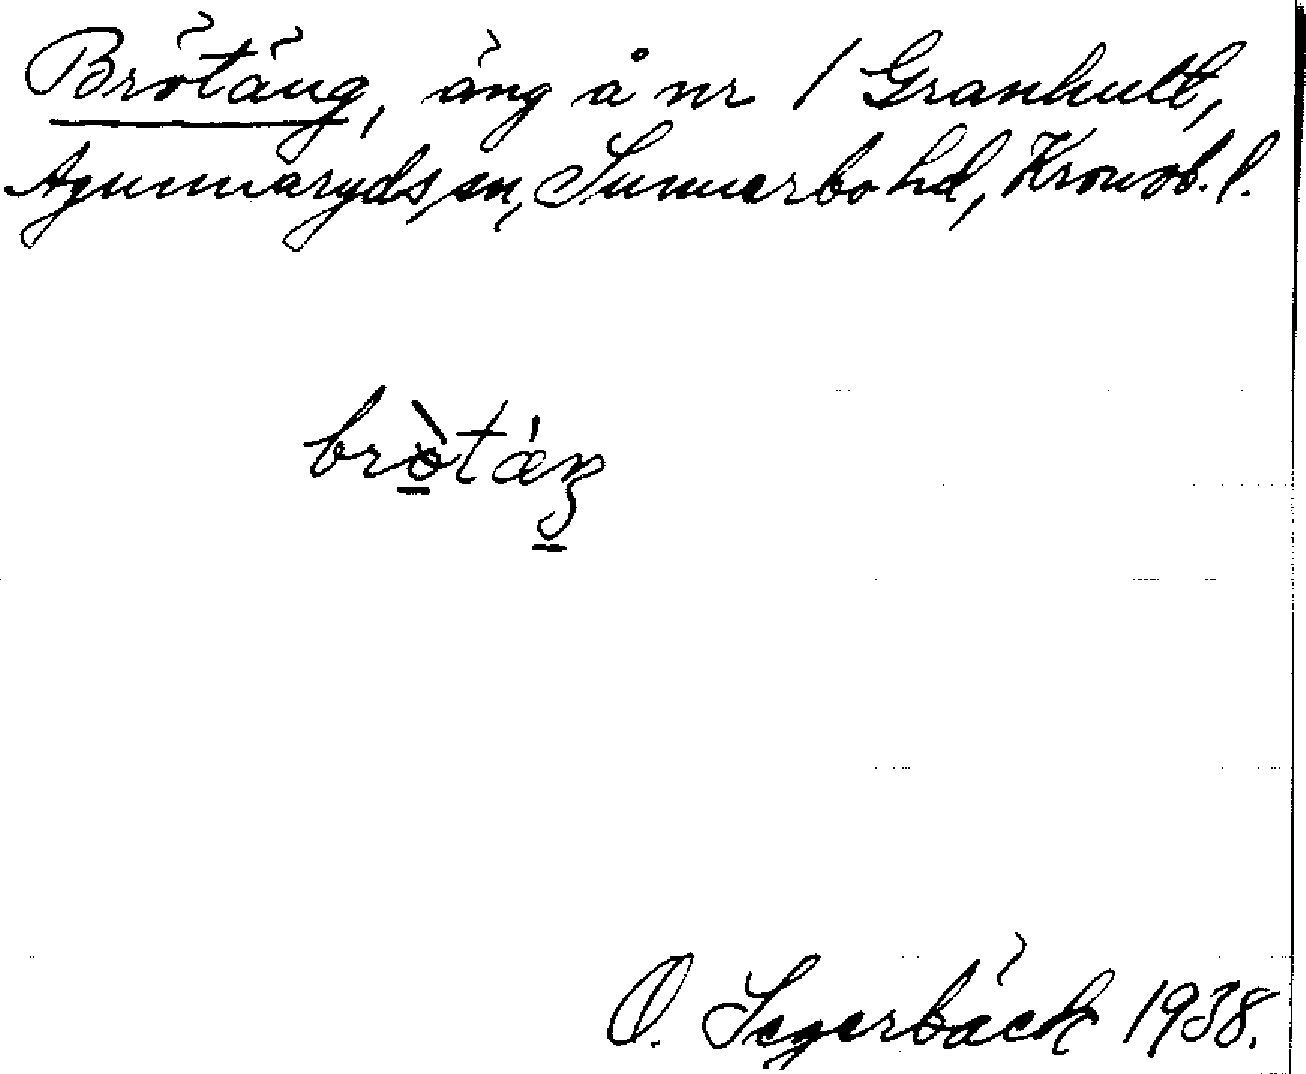 Brötäng, äng å nr 1 Granhult,
Agunnaryds sn, Sunnerbo hd, Kronob. l.
brø̀táŋ
O. Segerbäck 1938.